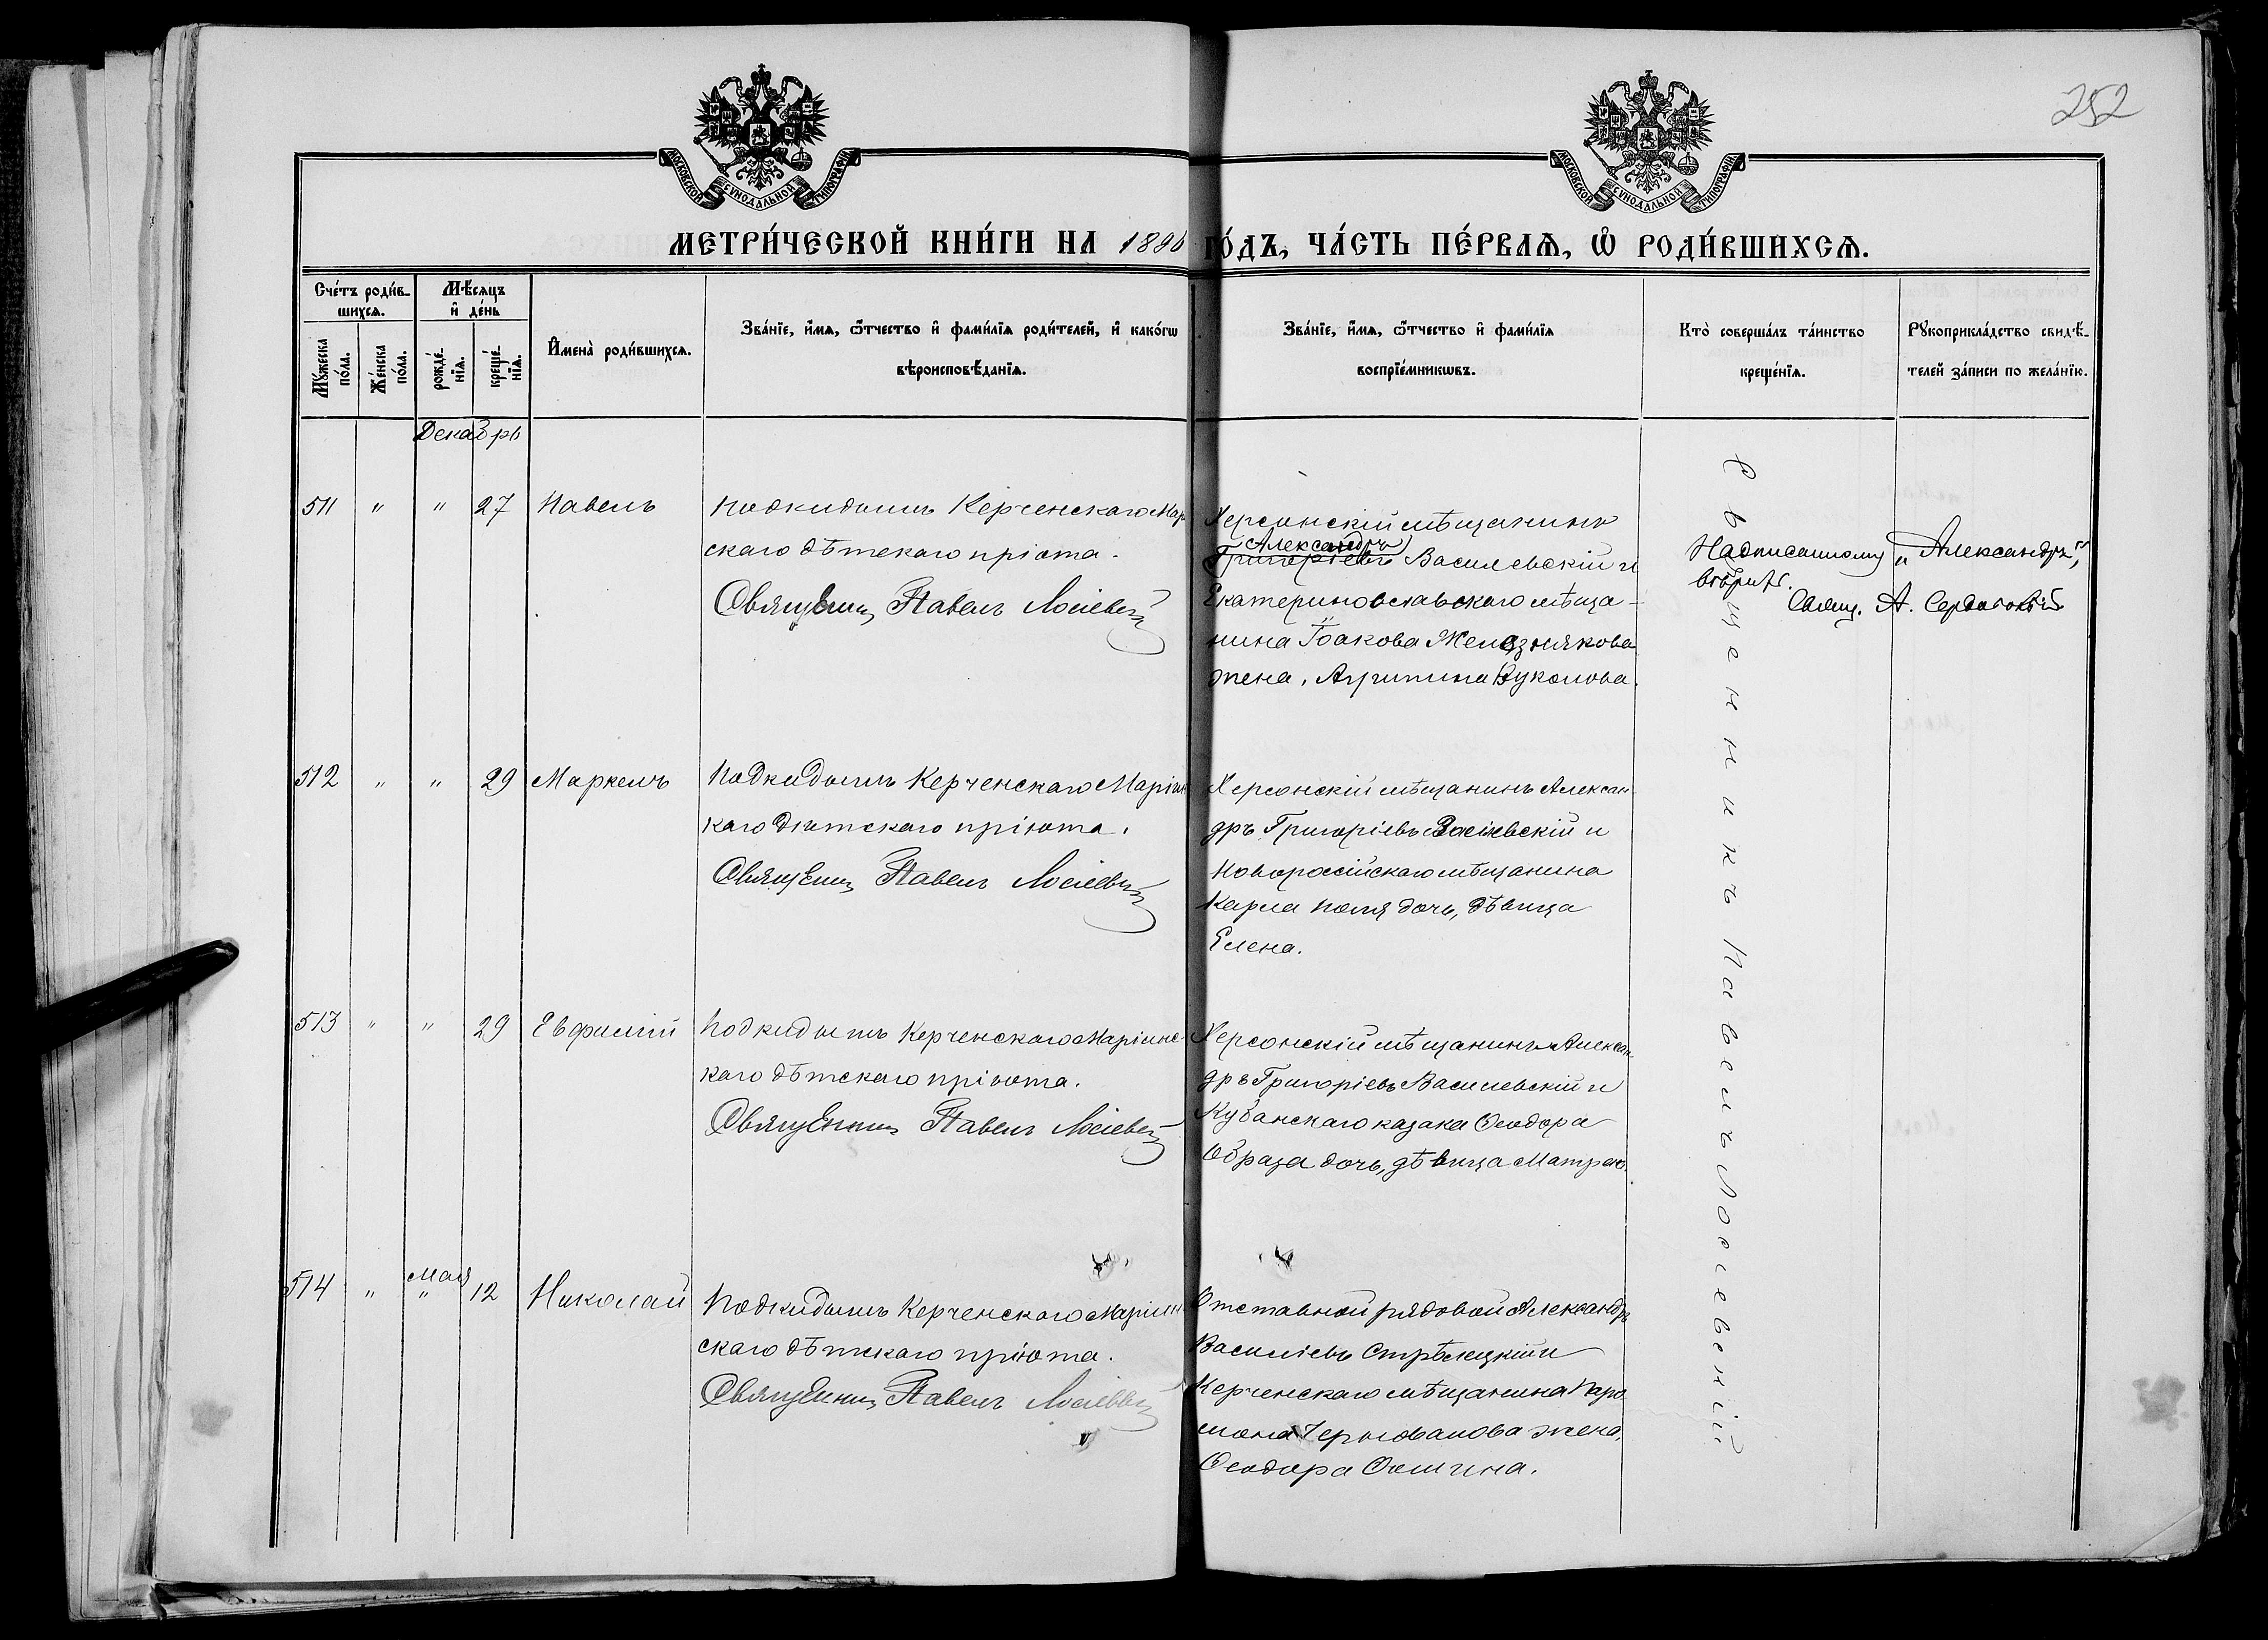 252
МОСКОВСКОЙ СѴНОДАЛЬНОЙ ТИПОГРАФІИ
МОСКОВСКОЙ СѴНОДАЛЬНОЙ ТИПОГРАФІИ
МЕТРИ́ЧЕСКОЙ КНИ́ГИ НА 1890 ГО́ДЪ, ЧА́СТЬ ПЕ́РВАѦ, Ѡ҆ РОДИ́ВШИХСѦ.
Сче́тъ роди́в-
шихсѧ.
Мꙋ́жеска по́ла.
Же́нска по́ла.
Мѣ́сѧцъ
и҆ де́нь
рожде́-нїѧ.
креще́-нїѧ.
И҆мена̀ роди́вшихсѧ.
Зва́нїе, и҆́мѧ, ѻ҆́тчество и҆ фами́лїѧ роди́телей, и҆ како́гѡ
вѣроисповѣ́данїѧ.
Зва́нїе, и҆́мѧ, ѻ҆́тчество и҆ фами́лїѧ
воспрїе́мникѡвъ.
Кто̀ соверша́лъ та́инство
креще́нїѧ.
Рꙋкоприкла́дство свидѣ́-
телей за́писи по жела́нїю.
Декабрь
511 " " 27 Павелъ
Подкидышъ Керченскаго Мар
скаго дѣтскаго пріюта.
Священникъ Павелъ Лосіевскій
Херсонскій мѣщанинъ
Александръ
Григоріевъ Василевскій и
Екатеринославскаго мѣща-
нина Іоакова Железнякова
жена, Агрипина Вуколова.
Надписанному „Александръ“
вѣрить.
Свящ. А. Сердобольскій
512 " " 29 Маркелъ
Подкидышъ Керченскаго Маріин
каго дѣтскаго пріюта.
Священникъ Павелъ Лосіевскій
Херсонскій мѣщанинъ Алексан-
дръ Григоріевъ Василевскій и
Новоросійскаго мѣщанина
Карла Поля дочь, дѣвица
Елена.
513 " " 29 Евфимій
Подкидышъ Керченскаго Маріинс-
каго дѣтскаго пріюта.
Священникъ Павелъ Лосіевскій
Херсонскій мѣщанинъ Алексан-
дръ Григоріевъ Василевскій и
Кубанскаго казака Ѳеодора
Образа дочь, дѣвица Матрон.
514 " Мая " 12 Николай
Подкидышъ Керченскаго Маріин
скаго дѣтскаго пріюта.
Священникъ Павелъ Лосіевскій
Отставной рядовой Александръ
Василіевъ Стрѣлецкій и
Керченскаго мѣщанина Паро
мона жена,
Ѳеодора Ѳомина.
Священникъ Павелъ Лосіевскій